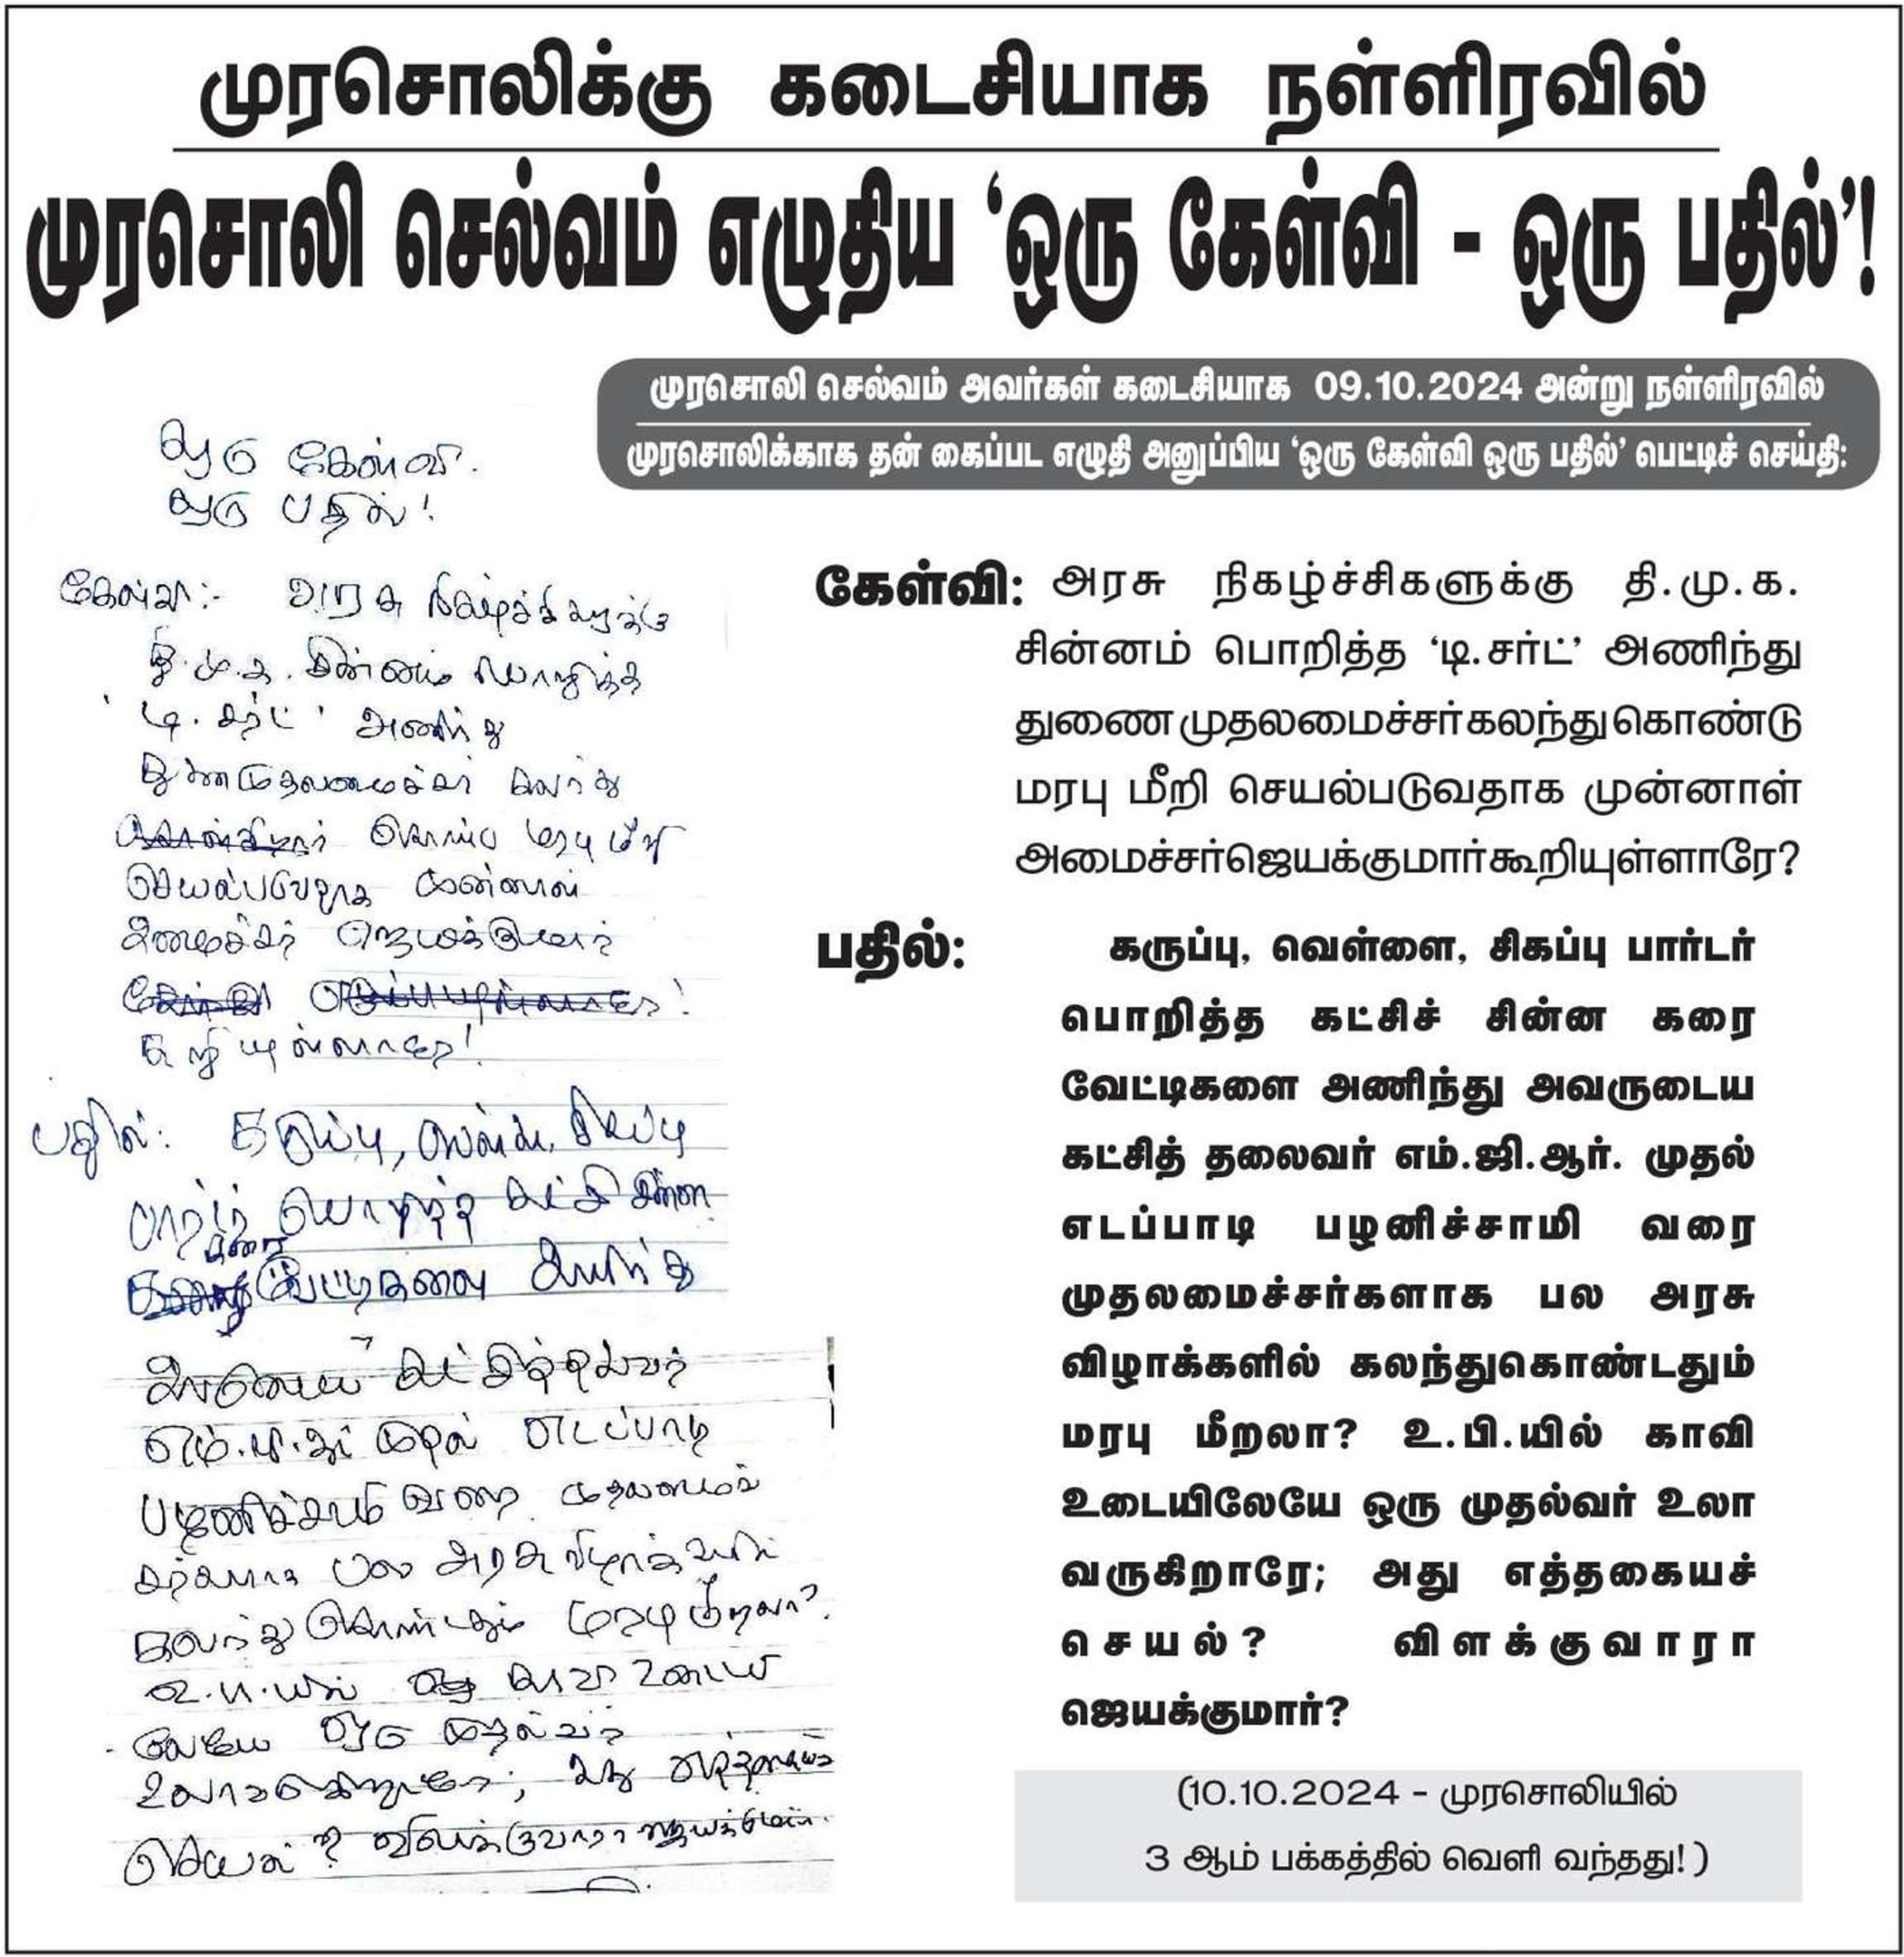 முரசொலிக்கு கடைசியாக நள்ளிரவில்
முரசொலி செல்வம் எழுதிய ‘ஒரு கேள்வி - ஒரு பதில்’!
முரசொலி செல்வம் அவர்கள் கடைசியாக 09.10.2024 அன்று நள்ளிரவில்
முரசொலிக்காக தன் கைப்பட எழுதி அனுப்பிய ‘ஒரு கேள்வி ஒரு பதில்’ பெட்டிச் செய்தி:
ஒரு கேள்வி.
ஒரு பதில்!
கேள்வி:- அரசு நிகழ்ச்சிகளுக்கு
தி.மு.க. சின்னம் பொறித்த
'டி.சர்ட்' அணிந்து
துணைமுதலமைச்சர் கலந்து
கொண்டு மரபு மீறி
செயல்படுவதாக முன்னாள்
அமைச்சர் ஜெயக்குமார்
கூறியுள்ளாரே!
பதில்: கருப்பு, வெள்ளை, சிகப்பு
பார்டர் பொறித்த கட்சி சின்ன
கரை வேட்டிகளை அணிந்து
அவருடைய கட்சித்தலைவர்
எம்.ஜி.ஆர் முதல் எடப்பாடி
பழனிச்சாமி வரை முதலமைச்
சர்களாக பல அரசு விழாக்களில்
கலந்து கொண்டதும் மரபு மீறலா?
உ.பி.யில் காவி உடையி
லேயே ஒரு முதல்வர்
உலாவருகிறாரே; அது எத்தகைய
செயல்? விளக்குவாரா ஜெயக்குமார்.
கேள்வி: அரசு நிகழ்ச்சிகளுக்கு தி.மு.க.
சின்னம் பொறித்த ‘டி.சர்ட்’ அணிந்து
துணை முதலமைச்சர் கலந்து கொண்டு
மரபு மீறி செயல்படுவதாக முன்னாள்
அமைச்சர் ஜெயக்குமார் கூறியுள்ளாரே?
பதில்: கருப்பு, வெள்ளை, சிகப்பு பார்டர்
பொறித்த கட்சிச் சின்ன கரை
வேட்டிகளை அணிந்து அவருடைய
கட்சித் தலைவர் எம்.ஜி.ஆர். முதல்
எடப்பாடி பழனிச்சாமி வரை
முதலமைச்சர்களாக பல அரசு
விழாக்களில் கலந்துகொண்டதும்
மரபு மீறலா? உ.பி.யில் காவி
உடையிலேயே ஒரு முதல்வர் உலா
வருகிறாரே; அது எத்தகையச்
செயல்? விளக்குவாரா
ஜெயக்குமார்?
(10.10.2024 - முரசொலியில்
3 ஆம் பக்கத்தில் வெளி வந்தது!)